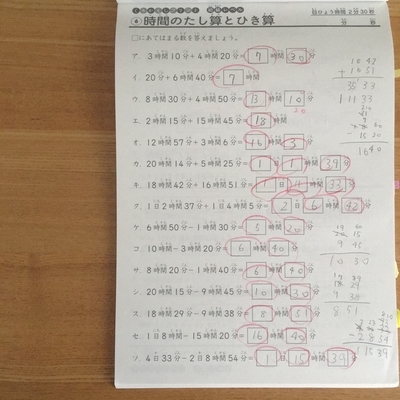 ⑥ 時間のたし算とひき算
目ひょう時間 2分30秒
□にあてはまる数を答えましょう。
ア. 3時間10分+4時間20分=7時間30分
イ. 20分+6時間40分=7時間
ウ. 8時間30分+4時間50分=13時間10分
20
エ. 2時間15分+15時間45分=18時間
オ. 12時間57分+3時間6分=16時間3分
カ. 20時間14分+5時間25分=1日1時間39分
キ. 18時間42分+16時間51分=1日11時間33分
ク. 1日2時間37分+1日4時間5分=2日6時間32分
ケ. 6時間50分-1時間30分=5時間20分
コ. 10時間-3時間20分=6時間40分
サ. 8時間20分-1時間40分=6時間40分
シ. 20時間15分-9時間45分=10時間30分
ス. 18時間29分-9時間38分=8時間51分
セ. 1日8時間-15時間20分=16時間40分
ソ. 4日33分-2日8時間54分=1日15時間39分